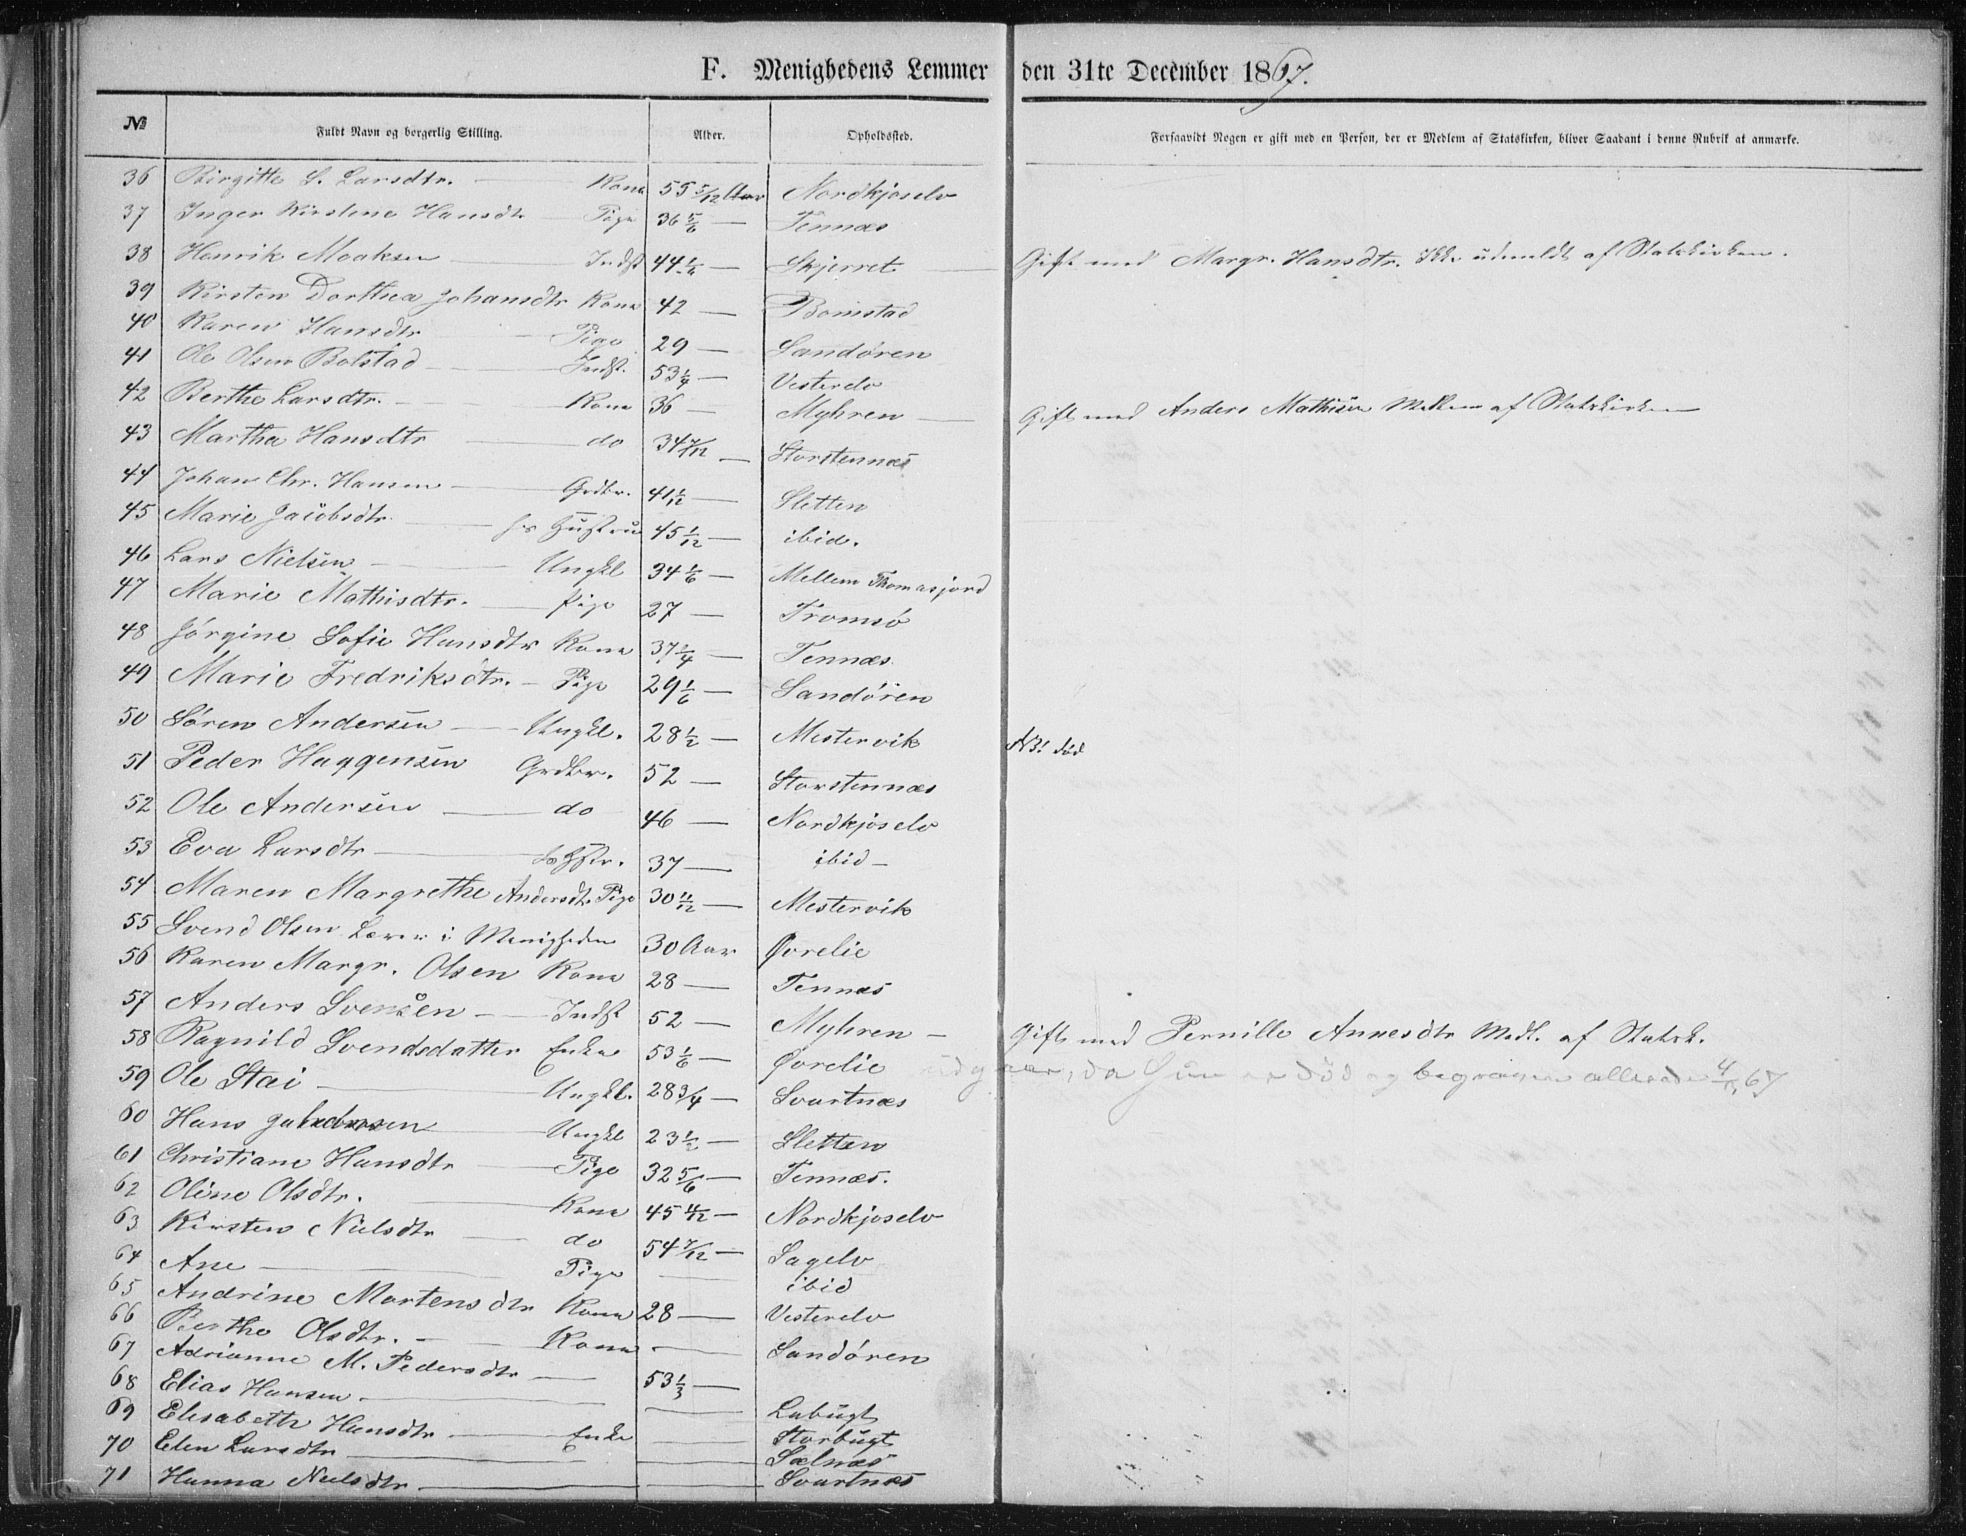 F. Menighedens Lemmer den 31te December 1867.
№ Fuldt Navn og borgerlig Stilling. Alder. Opholdssted. Forsaavidt Nogen er gift med en Person, der er Medlem af Statskirken, bliver Saadant i denne Rubrik at anmærke.
36 Birgitte S. Larsdtr. — Kone 55 5/12 Aar Nordkjoselv
37 Inger Kirstine Hansdtr — Pige 36 5/6 — Tennæs
38 Henrik Moaksen — Indst 44 1/4 — Skjerret — Gift med Margr. Hansdtr. Ikke udmeldt af Statskirken.
39 Kirsten Dorthea Johansdtr Kone 42 — Bomstad
40 Karen Hansdtr — Pige 29 — Sandøren
41 Ole Olsen Bolstad — Indst. 53 1/4 — Vesterelv
42 Berthe Larsdtr. — Kone 36 — Myhren — Gift med Anders Mathisen Medlem af Statskirken
43 Martha Hansdtr — do 34 7/12 — Storstennæs
44 Johan Chr. Hansen — Grdbr. 41 1/12 — Sletten
45 Marie Jacobsdtr — hs Hustru 45 1/12 — ibid.
46 Lars Nielsen — Ungkl 34 1/6 — Mellem Thomasjord
47 Marie Mathisdtr. — Pige 27 — Tromsø
48 Jørgine Sofie Hansdtr Kone 37 1/4 — Tennæs
49 Marie Fredriksdtr. — Pige 29 1/6 — Sandøren
50 Søren Andersen — Ungkl. 28 1/2 — Mestervik NB! død
51 Peder Haggensen Grdbr. 52 — Storstennæs
52 Ole Andersen — do 46 — Nordkjoselv
53 Eva Larsdtr — hs Hstr. 37 — ibid —
54 Maren Margrethe Andersdtr. Pige 30 11/12 — Mestervik
55 Svend Olsen Lærer i Menigheden 30 Aar Øvrelie
56 Karen Margr. Olsen Kone 28 — Tennæs
57 Anders Svensen — Indst 52 — Myhren — Gift med Pernille Annesdtr Medl. af Statsk.
58 Ragnild Svendsdatter Enke 53 1/6 — Øvrelie udgaar, da hun er død og begraven allerede 67
59 Ole Stai — Ungkl. 28 3/4 — Svartnæs
60 Hans — Ungkl 23 1/2 — Sletten
61 Christiane Hansdtr — Pige 32 5/6 — Tennæs.
62 Oline Olsdtr. — Kone 45 4/12 — Nordkjoselv
63 Kirsten Nielsdtr — do 54 7/12 — Sagelv
64 Ane — Pige — ibid
65 Andrine Mortensdtr Kone 28 — Vesterelv
66 Berthe Olsdtr. — Kone — Sandøren
67 Adrianne M. Pedersdtr — 53 1/3 —
68 Elias Hansen — — Labugt
69 Elisabeth Hansdtr — Enke — Storbugt
70 Elen Larsdtr — — Sælnæs
71 Hanna Nielsdtr — — Svartnæs